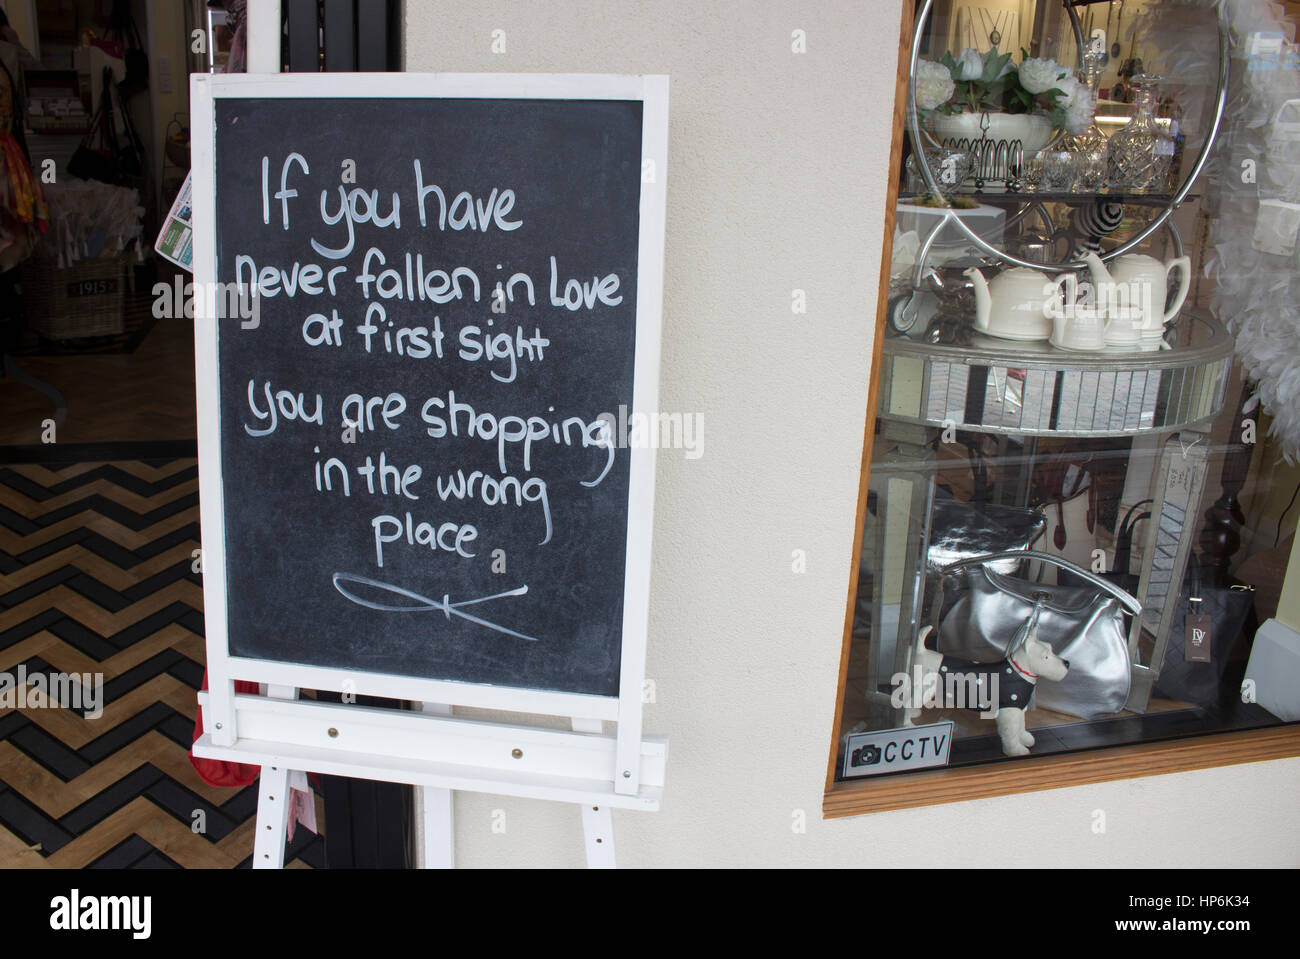 If you have
never fallen in Love
at first sight
you are shopping
in the wrong
place
CCTV
DV
1915
alamy
Image ID: HP6K34
www.alamy.com